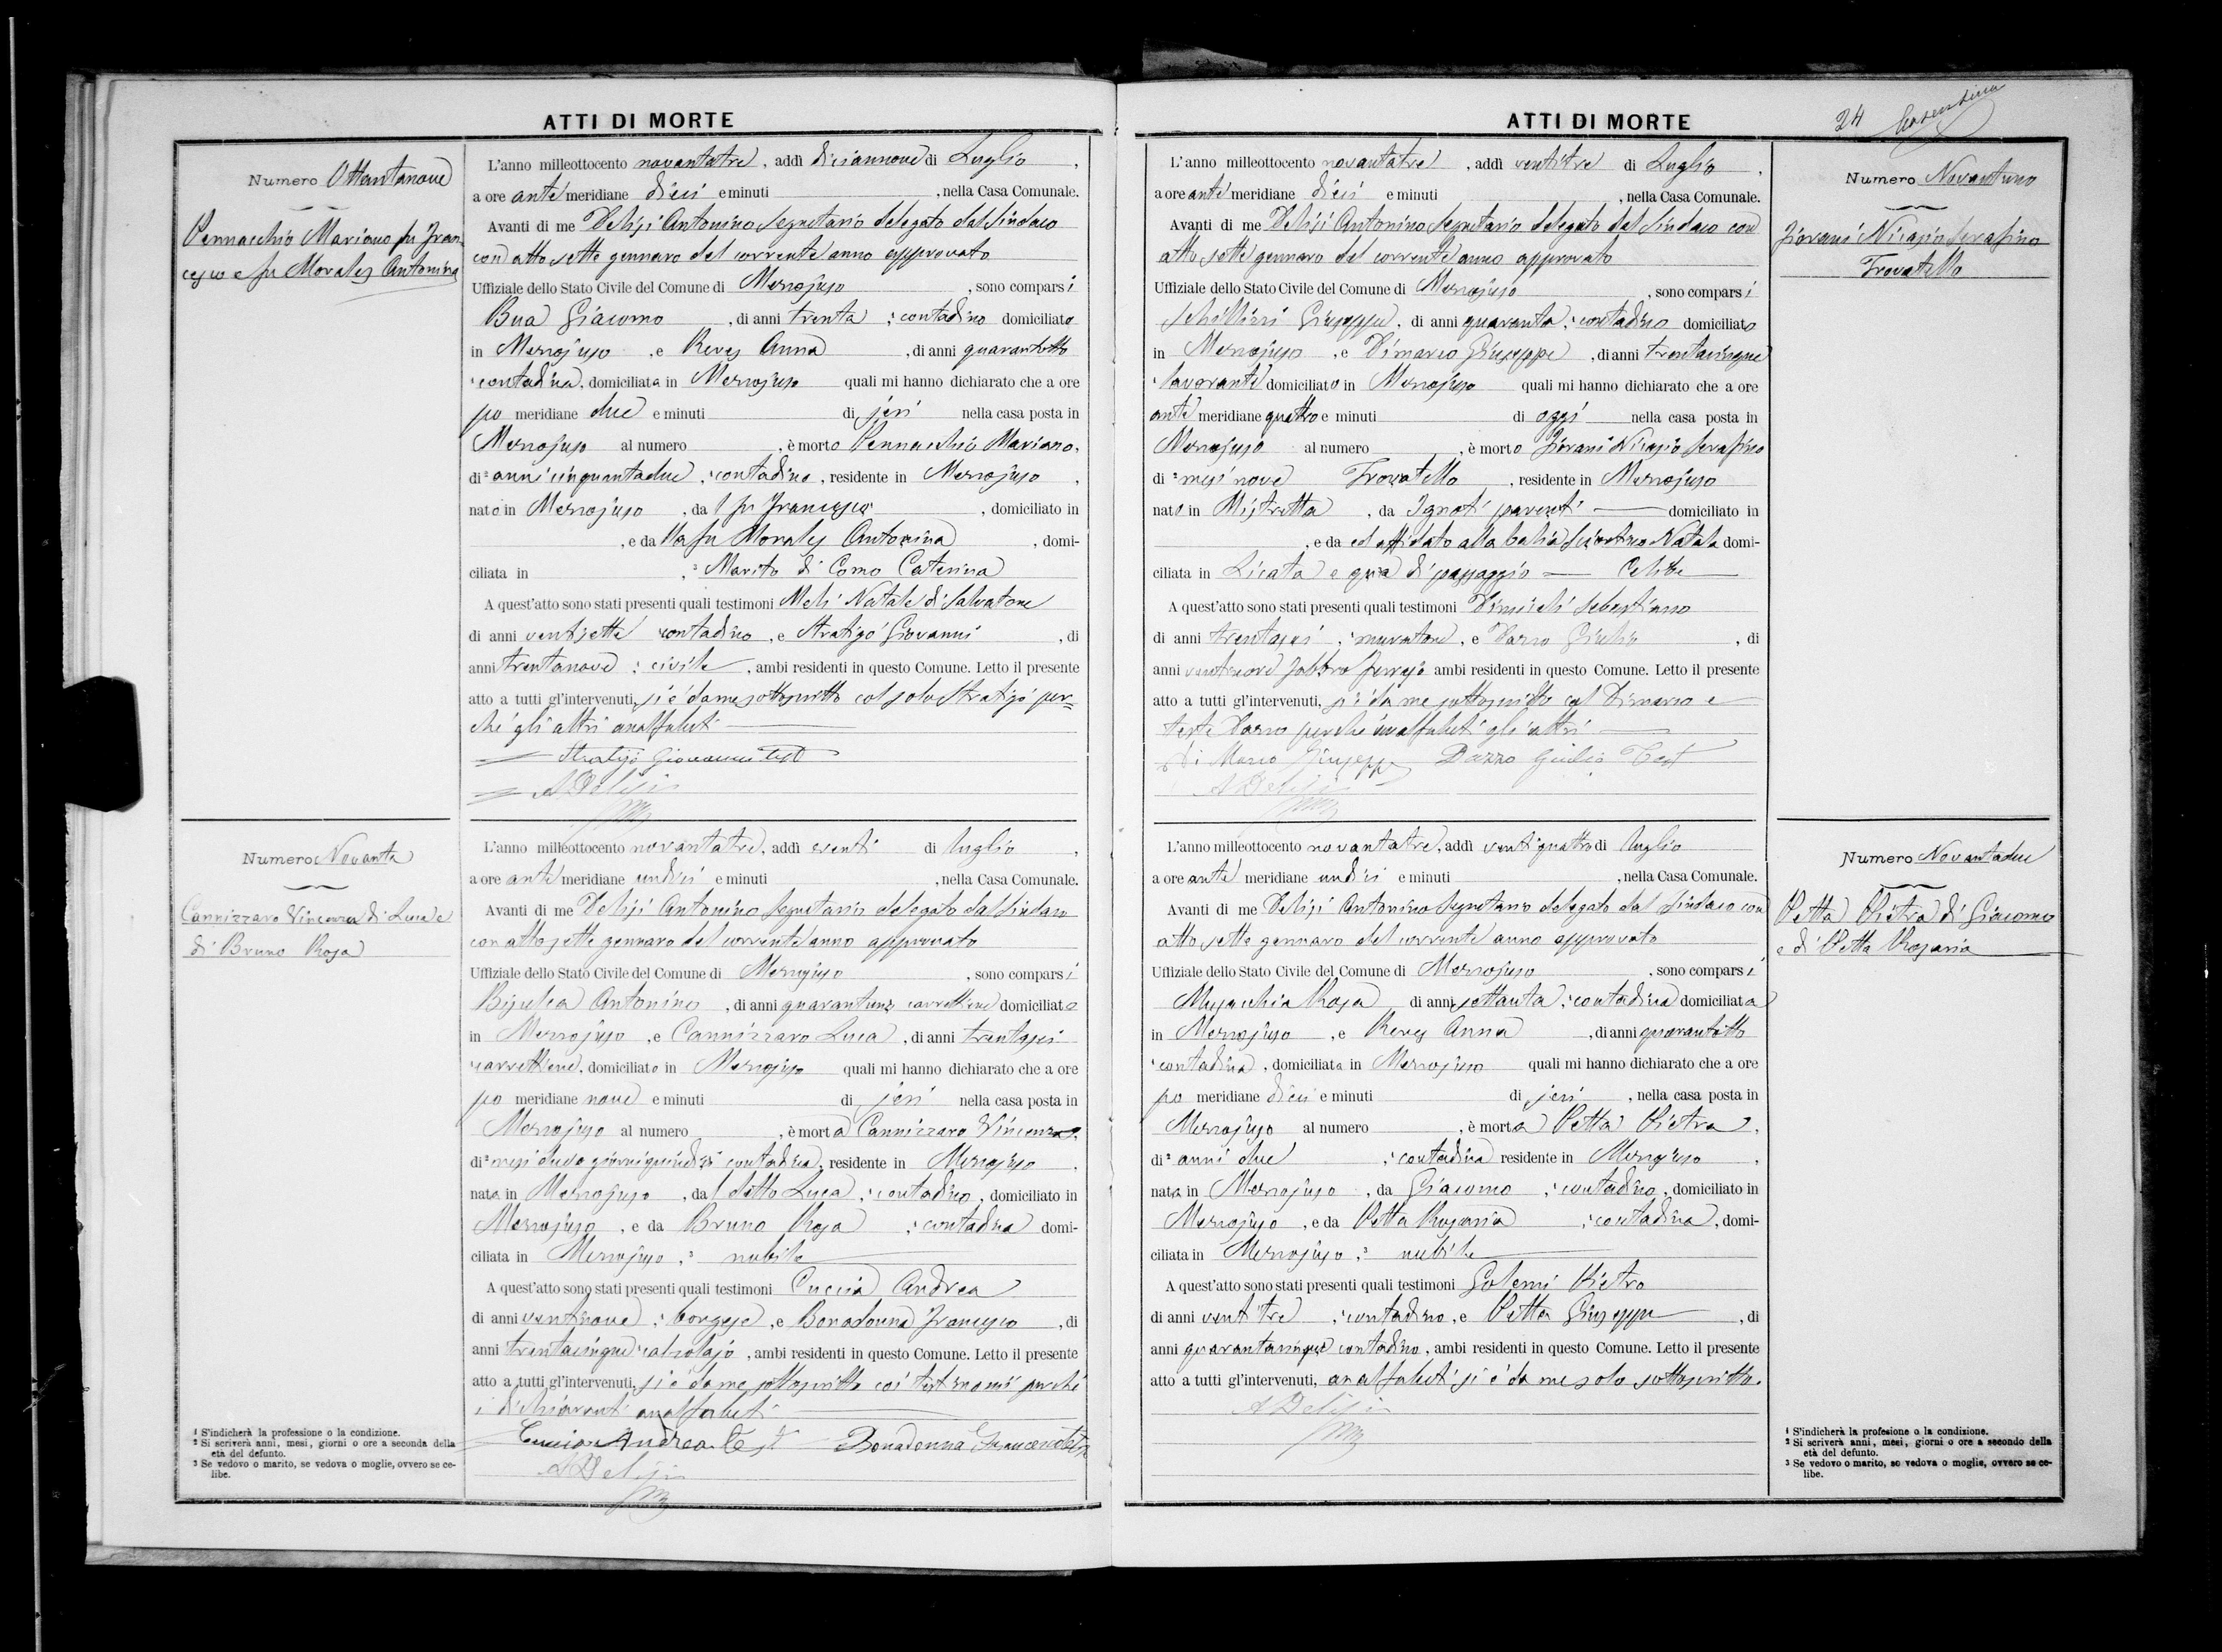 ATTI DI MORTE
Numero Ottantanove
Pennacchio Mariano fu Fran
cesco e fu Morales Antonina
L'anno milleottocento novantatre, addì diciannove di Luglio,
a ore ante meridiane dieci e minuti , nella Casa Comunale.
Avanti di me Delisi Antonino Segretario delegato dal Sindaco
con atto sette gennaro del corrente anno approvato
Uffiziale dello Stato Civile del Comune di Mezzojuso , sono comparsi
Bua Giacomo , di anni trenta, contadino domiciliato
in Mezzojuso, e Reres Anna , di anni quarantotto
contadina, domiciliata in Mezzojuso quali mi hanno dichiarato che a ore
po meridiane due e minuti di jeri nella casa posta in
Mezzojuso al numero , è morto Pennacchio Mariano,
di anni cinquantadue, contadino, residente in Mezzojuso,
nato in Mezzojuso, dal fu Francesco , domiciliato in
, e dalla fu Morales Antonina , domi-
ciliata in , Marito di Como Caterina
A quest'atto sono stati presenti quali testimoni Meli Natale di Salvatore
di anni ventisette contadino, e Stratigò Giovanni , di
anni trentanove, civile, ambi residenti in questo Comune. Letto il presente
atto a tutti gl'intervenuti, si è da me sottoscritto col solo Stratigò per=
chè gli altri analfabeti
Stratigò Giovanni test
A Delisi
Numero Novanta
Cannizzaro Vincenza di Luca e
di Bruno Rosa
L'anno milleottocento novantatre, addì venti di luglio,
a ore ante meridiane undici e minuti , nella Casa Comunale.
Avanti di me Delisi Antonino Segretario delegato dal Sindaco
con atto sette gennaro del corrente anno approvato
Uffiziale dello Stato Civile del Comune di Mezzojuso , sono comparsi
Bisulca Antonino, di anni quarantuno carrettiere domiciliato
in Mezzojuso, e Cannizzaro Luca, di anni trentasei
carrettiere, domiciliato in Mezzojuso quali mi hanno dichiarato che a ore
po meridiane nove e minuti di jeri nella casa posta in
Mezzojuso al numero , è morta Cannizzaro Vincenza,
di mesi due e giorni quindici contadina, residente in Mezzojuso,
nata in Mezzojuso, dal detto Luca, contadino, domiciliato in
Mezzojuso, e da Bruno Rosa , contadina domi-
ciliata in Mezzojuso, nubile
A quest'atto sono stati presenti quali testimoni Cuccia Andrea
di anni ventinove, borgese, e Bonadonna Francesco, di
anni trentacinque calzolajo, ambi residenti in questo Comune. Letto il presente
atto a tutti gl'intervenuti, si è da me sottoscritto coi testimoni perchè
i dichiaranti analfabeti
Cuccia Andrea Test Bonadonna Francesco test
A Delisi
¹ S'indicherà la professione o la condizione.
² Si scriverà anni, mesi, giorni o ore a seconda della
età del defunto.
³ Se vedovo o marito, se vedova o moglie, ovvero se ce-
libe.
ATTI DI MORTE
24
L'anno milleottocento novantatre, addì ventitre di Luglio,
a ore ante meridiane dieci e minuti , nella Casa Comunale.
Avanti di me Delisi Antonino Segretario delegato dal Sindaco con
atto sette gennaro del corrente anno approvato
Uffiziale dello Stato Civile del Comune di Mezzojuso , sono comparsi
Schillizzi Giuseppe, di anni quaranta, contadino domiciliato
in Mezzojuso, e Dimarco Giuseppe, di anni trentacinque
lavorante domiciliato in Mezzojuso quali mi hanno dichiarato che a ore
ante meridiane quattro e minuti di oggi nella casa posta in
Mezzojuso al numero , è morto Giovani Nicasio Serafino
di mesi nove Trovatello, residente in Mezzojuso
nato in Mistretta, da Ignoti parenti domiciliato in
, e da ed affidato alla balia Natala domi-
ciliata in Licata e qua di passaggio Celibe
A quest'atto sono stati presenti quali testimoni Dimiceli Sebastiano
di anni trentasei, muratore, e Darzo Giulio , di
anni ventinove fabbro ferrajo ambi residenti in questo Comune. Letto il presente
atto a tutti gl'intervenuti, si è da me sottoscritto col Dimarco e
teste Darzo perchè analfabeti gli altri
Di Marco Giuseppe Dazzo Giulio Test
A Delisi
Numero Novantuno
Giovani Nicasio Serafino
Trovatello
L'anno milleottocento novantatre, addì ventiquattro di luglio
a ore ante meridiane undici e minuti , nella Casa Comunale.
Avanti di me Delisi Antonino Segretario delegato dal Sindaco con
atto sette gennaro del corrente anno approvato
Uffiziale dello Stato Civile del Comune di Mezzojuso , sono comparsi
Musacchia Rosa di anni settanta, contadina domiciliata
in Mezzojuso, e Reres Anna , di anni quarantotto
contadina, domiciliata in Mezzojuso quali mi hanno dichiarato che a ore
po meridiane dieci e minuti di jeri , nella casa posta in
Mezzojuso al numero , è morta Petta Pietra,
di anni due , contadina residente in Mezzojuso,
nata in Mezzojuso, da Giacomo, contadino, domiciliato in
Mezzojuso, e da Petta Rosaria , contadina, domi-
ciliata in Mezzojuso, nubile
A quest'atto sono stati presenti quali testimoni Golemi Pietro
di anni ventitre, contadino, e Petta Giuseppe, di
anni quarantacinque contadino, ambi residenti in questo Comune. Letto il presente
atto a tutti gl'intervenuti, analfabeti si è da me solo sottoscritto.
A Delisi
Numero Novantadue
Petta Pietra di Giacomo
e di Petta Rosaria
¹ S'indicherà la profesione o la condizione.
² Si scriverà anni, mesi, giorni o ore a secondo della
età del defunto.
³ Se vedovo o marito, se vedova o moglie, ovvero se ce-
libe.